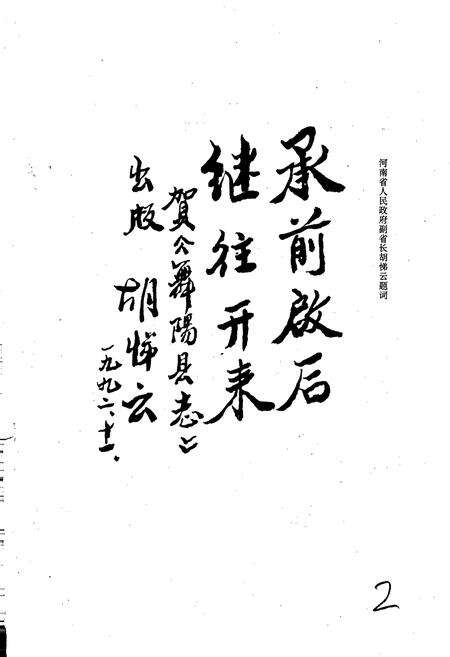 河南省人民政府副省长胡悌云题词
承前啟后
继往开来
贺《舞陽县志》
出版
胡悌云
一九九二、十一、
2